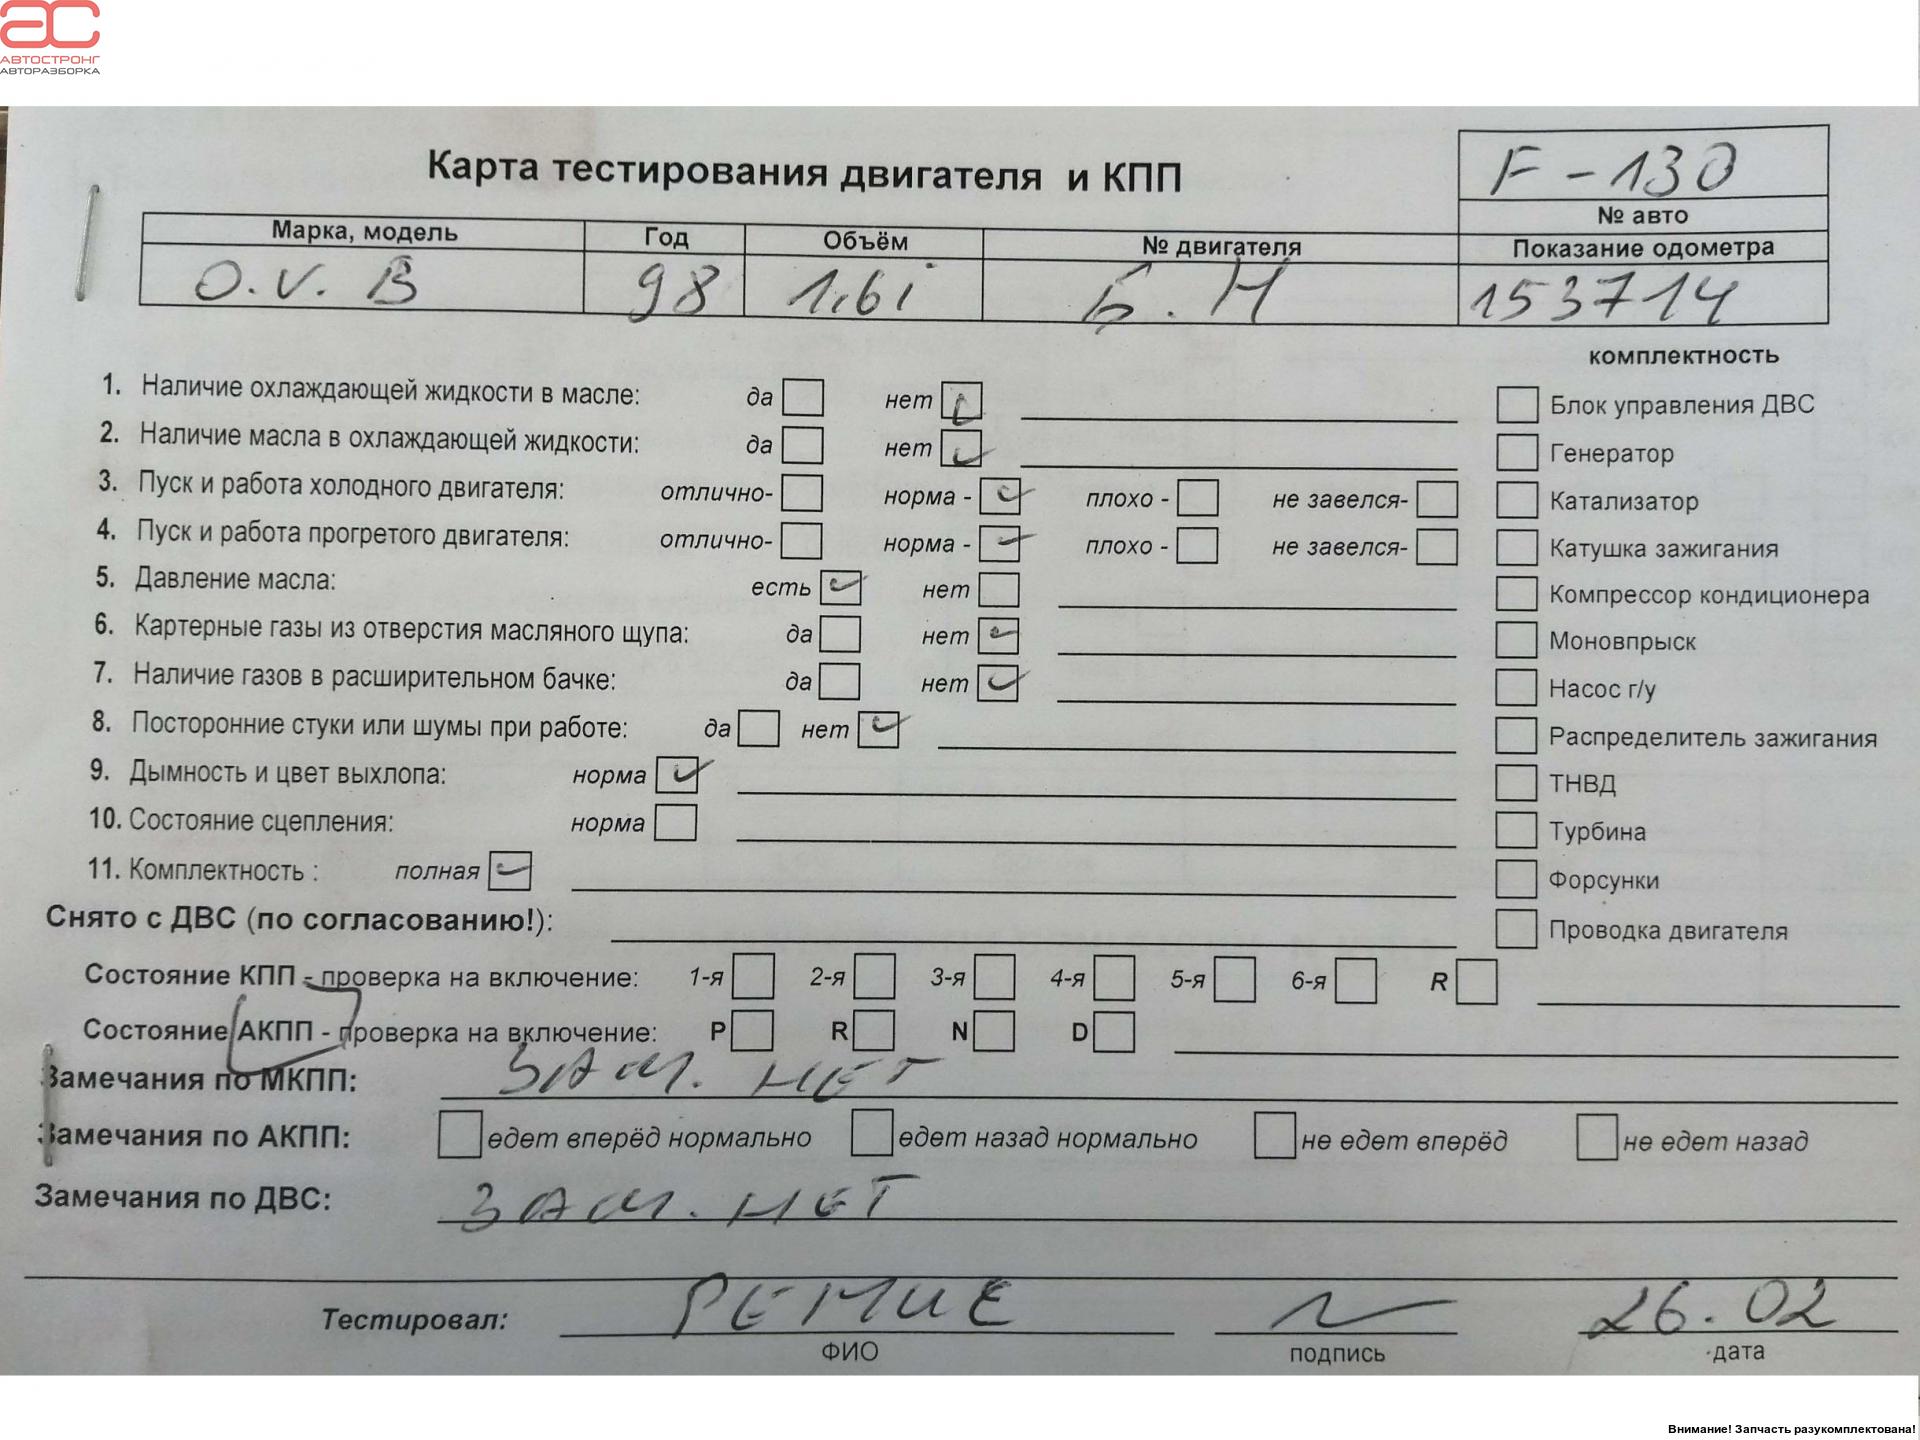 АВТОСТРОНГ
АВТОРАЗБОРКА
Карта тестирования двигателя и КПП
F-130
№ авто
Марка, модель Год Объём № двигателя Показание одометра
O.V. B 98 1,6i Б.Н 153714
комплектность
1. Наличие охлаждающей жидкости в масле: да нет
Блок управления ДВС
2. Наличие масла в охлаждающей жидкости: да нет
Генератор
3. Пуск и работа холодного двигателя: отлично- норма - плохо - не завелся-
Катализатор
4. Пуск и работа прогретого двигателя: отлично- норма - плохо - не завелся-
Катушка зажигания
5. Давление масла: есть нет
Компрессор кондиционера
6. Картерные газы из отверстия масляного щупа: да нет
Моновпрыск
7. Наличие газов в расширительном бачке: да нет
Насос г/у
8. Посторонние стуки или шумы при работе: да нет
Распределитель зажигания
9. Дымность и цвет выхлопа: норма
ТНВД
10. Состояние сцепления: норма
Турбина
11. Комплектность : полная
Форсунки
Снято с ДВС (по согласованию!):
Проводка двигателя
Состояние КПП - проверка на включение: 1-я 2-я 3-я 4-я 5-я 6-я R
Состояние АКПП - проверка на включение: P R N D
Замечания по МКПП: ЗАМ. НЕТ
Замечания по АКПП: едет вперёд нормально едет назад нормально не едет вперёд не едет назад
Замечания по ДВС: ЗАМ. НЕТ
Тестировал: 26.02
ФИО подпись дата
Внимание! Запчасть разукомплектована!